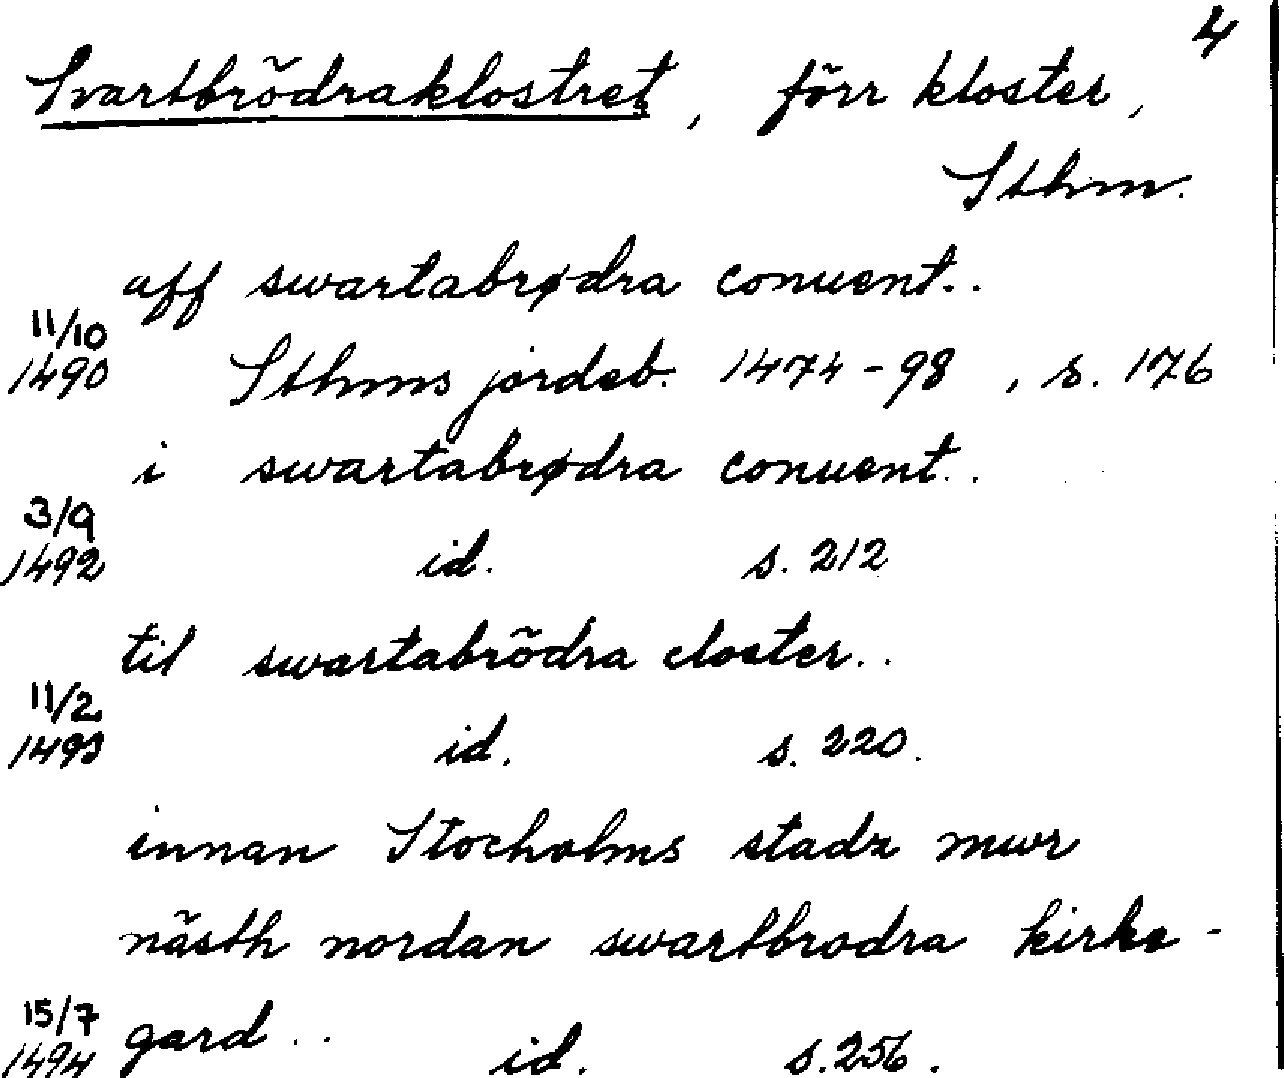 4
Svartbrödraklostret, förr kloster,
Sthm.
aff swartabrødra conuent..
11/10
1490 Sthms jordeb. 1474-98, s. 176
i swartabrødra conuent..
3/9
1492 id. s. 212
til swartabrödra closter..
11/2
1493 id. s. 220.
innan Stocholms stadz mwr
nästh nordan swartbrodra kirke-
15/7 gard..
1494 id. s. 256.